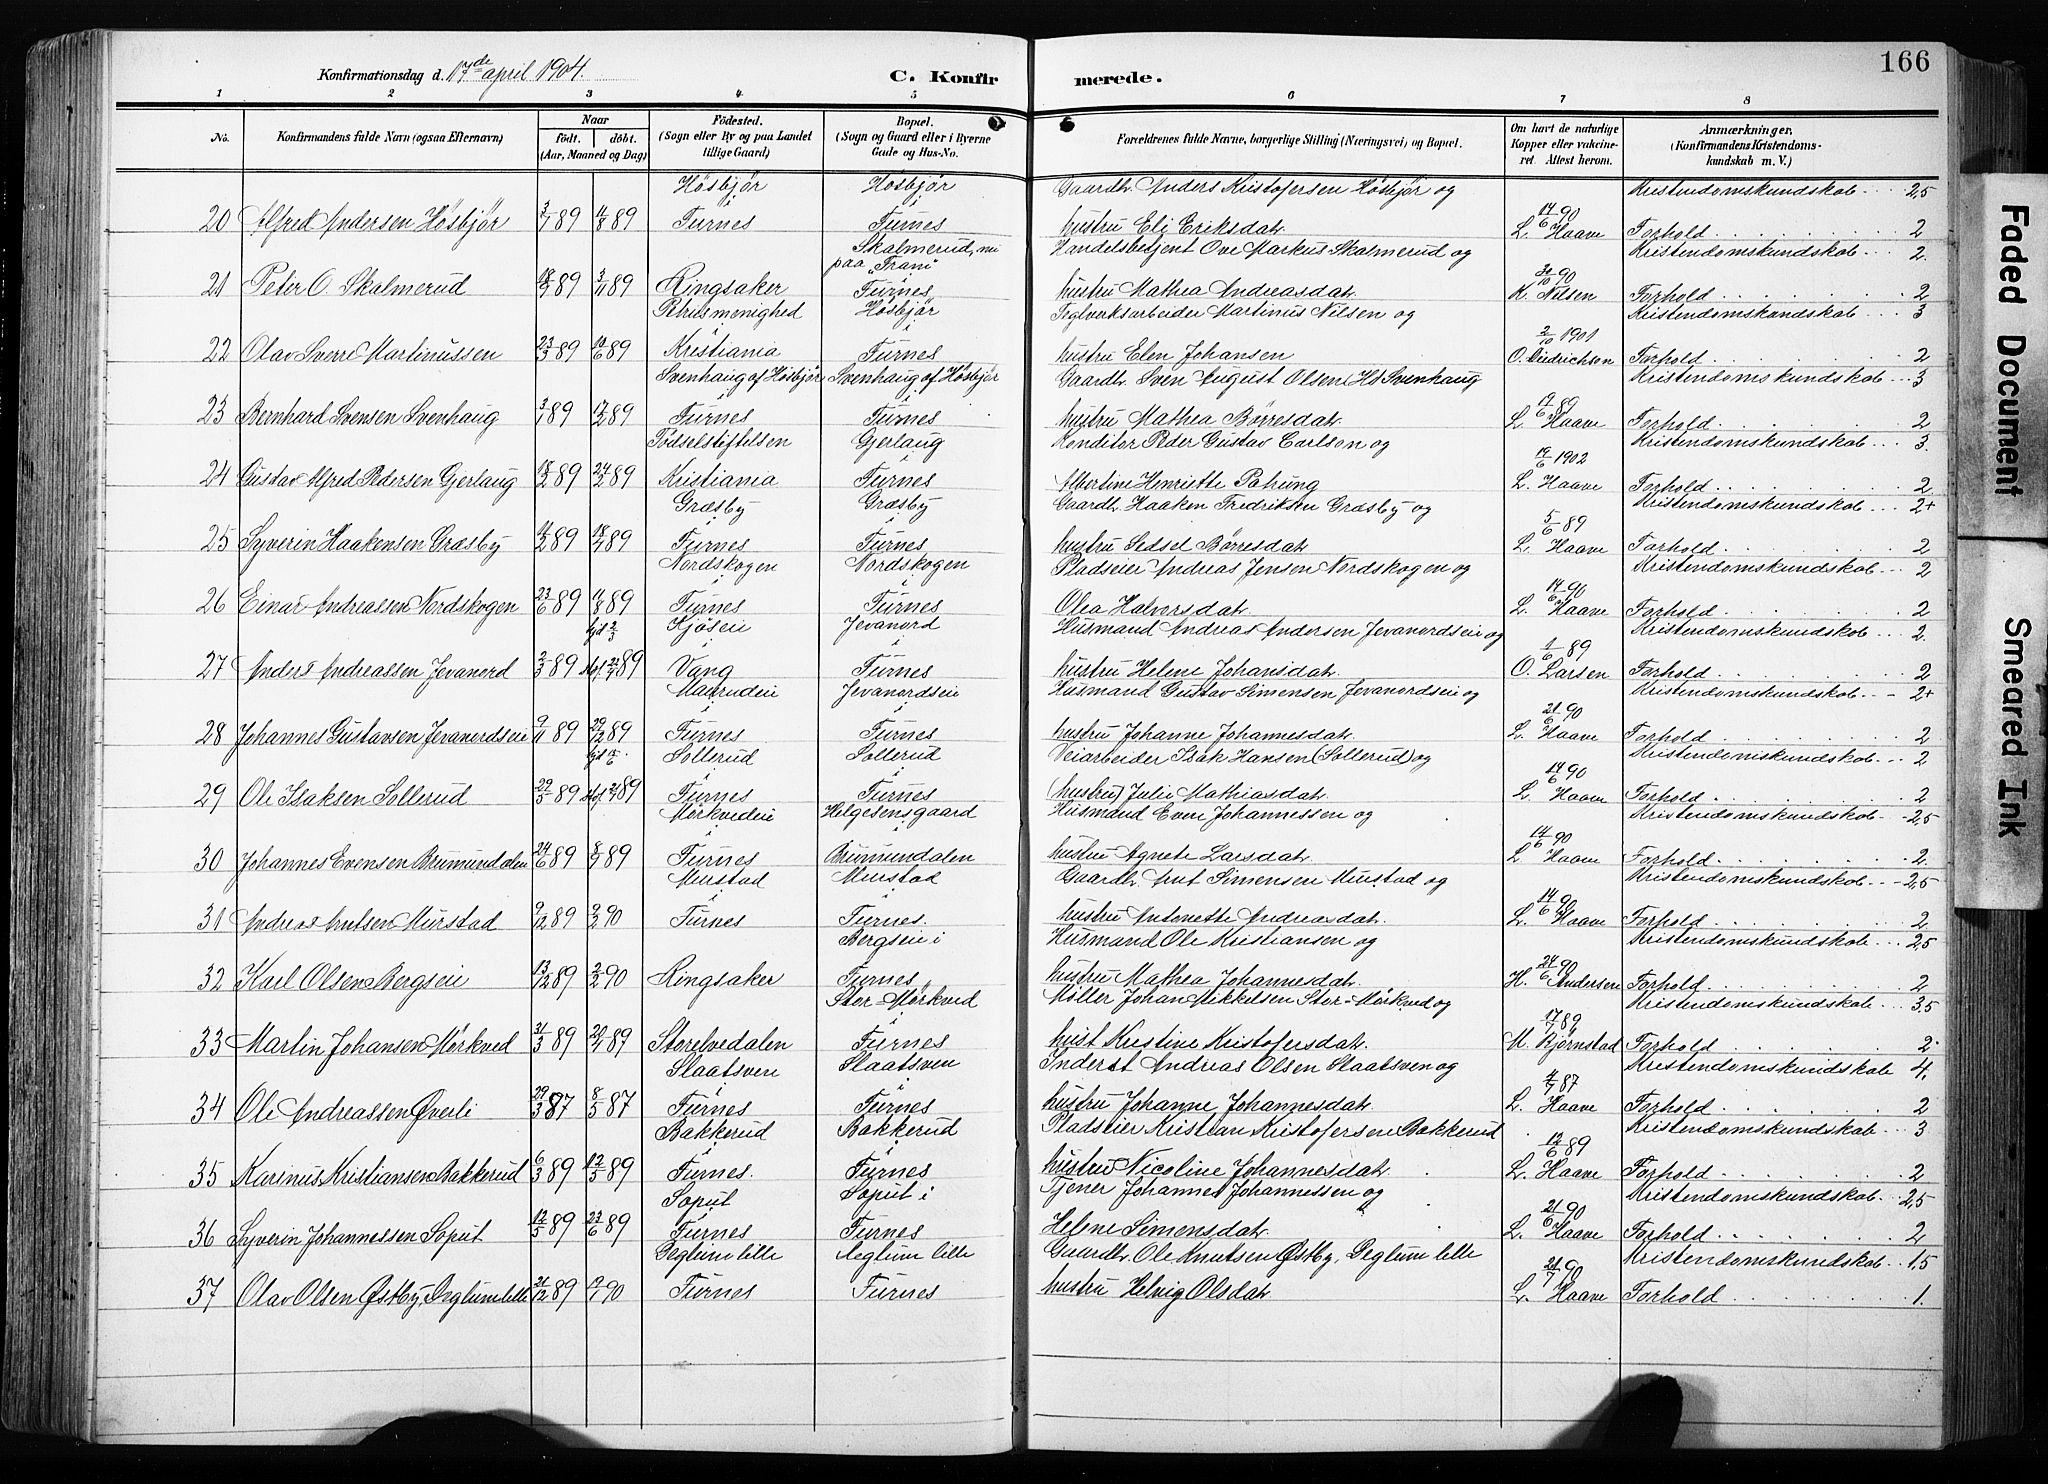 166
Konfirmationsdag d. 17de april 1904.
C. Konfirmerede.
1 2 3 4 5 6 7 8
No. Konfirmandens fulde Navn (ogsaa Efternavn) Naar født. døbt. (Aar, Maaned og Dag) Fødested. (Sogn eller By og paa Landet tillige Gaard) Bopæl. (Sogn og Gaard eller i Byerne Gade og Hus-No. Forældrenes fulde Navne, borgerlige Stilling (Næringsvei) og Bopæl. Om havt de naturlige Kopper eller vakcineret. Attest herom. Anmærkninger. (Konfirmandens Kristendomskundskab m. V.)
Høsbjør Høsbjør Gaardbr. Anders Kristofersen Høsbjør og Kristendomskundskab 2,5
20 Alfred Andersen Høsbjør 3/7 89 11/8 89 Furnes Furnes hustru Eli Eriksdatr. 14/6 90 L. Haave Forhold 2
Skalmerud, nu paa "Trani" i Handelsbetjent Ove Markus Skalmerud og Kristendomskundskab 2.
21 Peter O. Skalmerud 18/9 89 3/11 89 Ringsaker Furnes hustru Mathea Andreasdatr. 30/10 90 K. Nilsen Forhold 2
Petrusmenighed Høsbjør i Teglverksarbeider Martinus Nilsen og Kristendomskundskab 3
22 Olav Sverre Martinussen 23/3 89 10/6 89 Kristiania Furnes hustru Elen Johansen 2/10 1901 O. Diedrichson Forhold 2
Svenhaug af Høsbjør i Svenhaug af Høsbjør i Gaardbr. Sven August Olsen Svenhaug Kristendomskundskab 3
23 Bernhard Svensen Svenhaug 3/1 89 17/2 89 Furnes Furnes hustru Mathea Børresdatr. 17/6 89 L. Haave Forhold 2
Fødselsstiftelsen Gjerlaug i Konditor Peder Gustav Carlson og Kristendomskundskab 3.
24 Gustav Alfred Pedersen Gjerlaug 18/2 89 24/2 89 Kristiania Furnes Albertine Henriette Pahrung 19/6 1902 L. Haave Forhold 2
Græsby i Græsby i Gaardbr. Haaken Fredriksen Græsby og Kristendomskundskab 2+
25 Syverin Haakensen Græsby 11/2 89 18/4 89 Furnes Furnes hustru Sidsel Børresdatr. 5/6 89 L. Haave Forhold 2
Nordskogen i Nordskogen i Pladseier Andreas Jensen Nordskogen og Kristendomskundskab 2
26 Einar Andreassen Nordskogen 23/6 89 11/8 89 Furnes Furnes Olea Halvorsdatr. 14/6 90 L. Haave Forhold 2
hjd 2/3 Kjøseie i Jevanord i Husmand Andreas Andersen Jevanordseie og Kristendomskundskab 2.
27 Anders Andreassen Jevanord 2/3 89 stf. 22/4 89 Vang Furnes hustru Helene Johansdatr. 1/6 89 O. Larsen Forhold 2
Maurudeie i Jevanordseie i Husmand Gustav Simensen Jevanordseie og Kristendomskundskab 2+
28 Johannes Gustavsen Jevanordseie 9/11 89 29/12 89 Furnes Furnes hustru Johanne Johannesdatr. 21/6 90 L. Haave Forhold 2
Sollerud i Sollerud i Veiarbeider Isak Hansen (Sollerud) og Kristendomskundskab 2
29 Ole Isaksen Sollerud 29/5 89 Furnes Furnes (hustru) Julie Mathiasdatr. 14/6 90 L. Haave Forhold 2
Mørkvedeie i Helgesensgaard i Husmand Even Johannessen og Kristendomskundskab 2,5
30 Johannes Evensen Brumundalen 24/6 89 8/9 89 Furnes Brumundalen hustru Agnete Larsdatr. 14/6 90 L. Haave Forhold 2.
Murstad i Murstad i Gaardbr. Knut Simensen Murstad og Kristendomskundskab 2,5
31 Andreas Knutsen Murstad 9/12 89 9/2 90 Furnes Furnes. hustru Antonette Andreasdatr. 14/6 90 L. Haave Forhold 2
Bergseie i Husmand Ole Kristiansen og Kristendomskundskab 2,5
32 Karl Olsen Bergseie 13/12 89 2/2 90 Ringsaker Furnes hustru Mathea Johannesdatr. 24/6 90 H. Andersen Forhold 2
Stor-Mørkved i Møller Johan Mikkelsen Stor-Mørkved og Kristendomskundskab 3,5
33 Martin Johansen Mørkved 31/3 89 20/4 89 Storelvedalen Furnes hust Kristine Kristofersdatr. 17/7 89 M. Bjørnstad Forhold 2
Slaatsven i Slaatsven i Inderst Andreas Olsen Slaatsven og Kristendomskundskab 4.
34 Ole Andreassen Øverli 29/3 87 8/5 87 Furnes Furnes hustru Johanne Johannesdatr. 4/7 87 L. Haave Forhold 2
Bakkerud i Bakkerud i Pladseier Kristian Kristofersen Bakkerud Kristendomskundskab 3
35 Karinus Kristiansen Bakkerud 6/3 89 12/5 89 Furnes. Furnes hustru Nicoline Johannesdatr. 12/6 89 L. Haave Forhold 2
Soput i Soput i Tjener Johannes Johannessen og Kristendomskundskab 2,5
36 Syverin Johannessen Soput 12/5 89 23/6 89 Furnes Furnes Helene Simensdatr. 21/6 90 L. Haave Forhold 2
Deglum lille Deglum lille Gaardbr. Ole Knutsen Østby, Deglum lille Kristendomskundskab 1,5
37 Olav Olsen Østby, Deglum lille 21/12 89 19/1 90 Furnes Furnes hustru Helvig Olsdatr. 21/7 90 L. Haave Forhold 1.
Faded Document
Smeared Ink